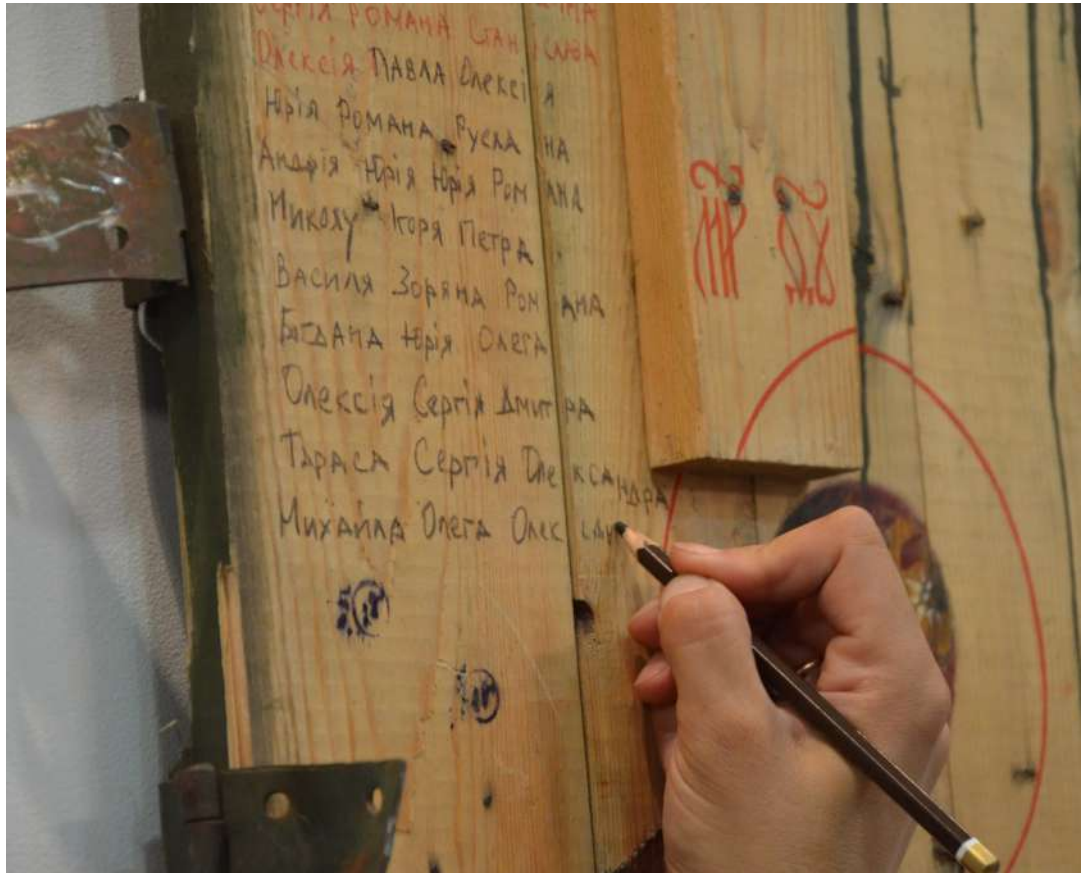 Сергія Романа Станіслава
Олексія Павла Олексія
Юрія Романа Руслана
Андрія Юрія Юрія Романа
Миколу Ігоря Петра
Василя Зоряна Романа
Богдана Юрія Олега
Олексія Сергія Дмитра
Тараса Сергія Олександра
Михайла Олега Олександ